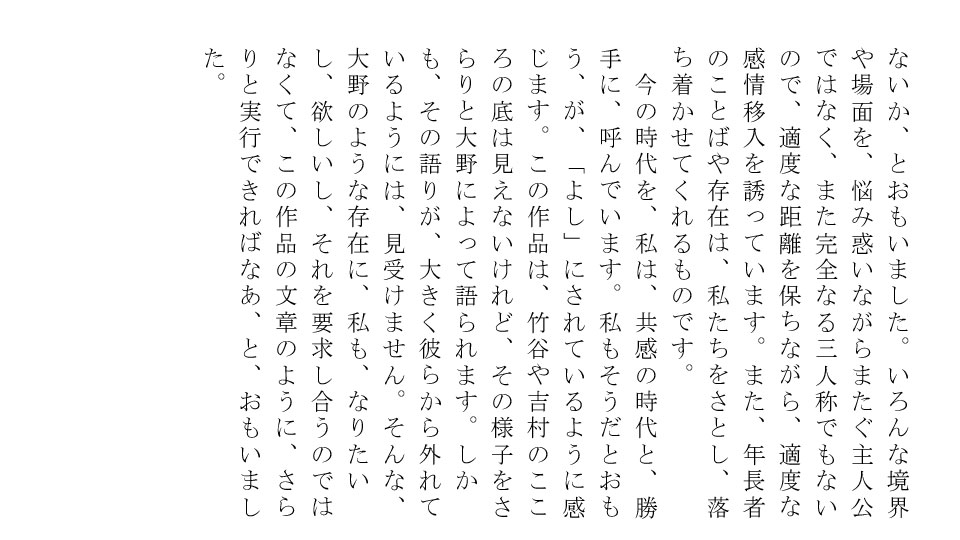 ないか、とおもいました。いろんな境界
や場面を、悩み惑いながらまたぐ主人公
ではなく、また完全なる三人称でもない
ので、適度な距離を保ちながら、適度な
感情移入を誘っています。また、年長者
のことばや存在は、私たちをさとし、落
ち着かせてくれるものです。
　今の時代を、私は、共感の時代と、勝
手に、呼んでいます。私もそうだとおも
う、が、「よし」にされているように感
じます。この作品は、竹谷や吉村のここ
ろの底は見えないけれど、その様子をさ
らりと大野によって語られます。しか
も、その語りが、大きく彼らから外れて
いるようには、見受けません。そんな、
大野のような存在に、私も、なりたい
し、欲しいし、それを要求し合うのでは
なくて、この作品の文章のように、さら
りと実行できればなあ、と、おもいまし
た。